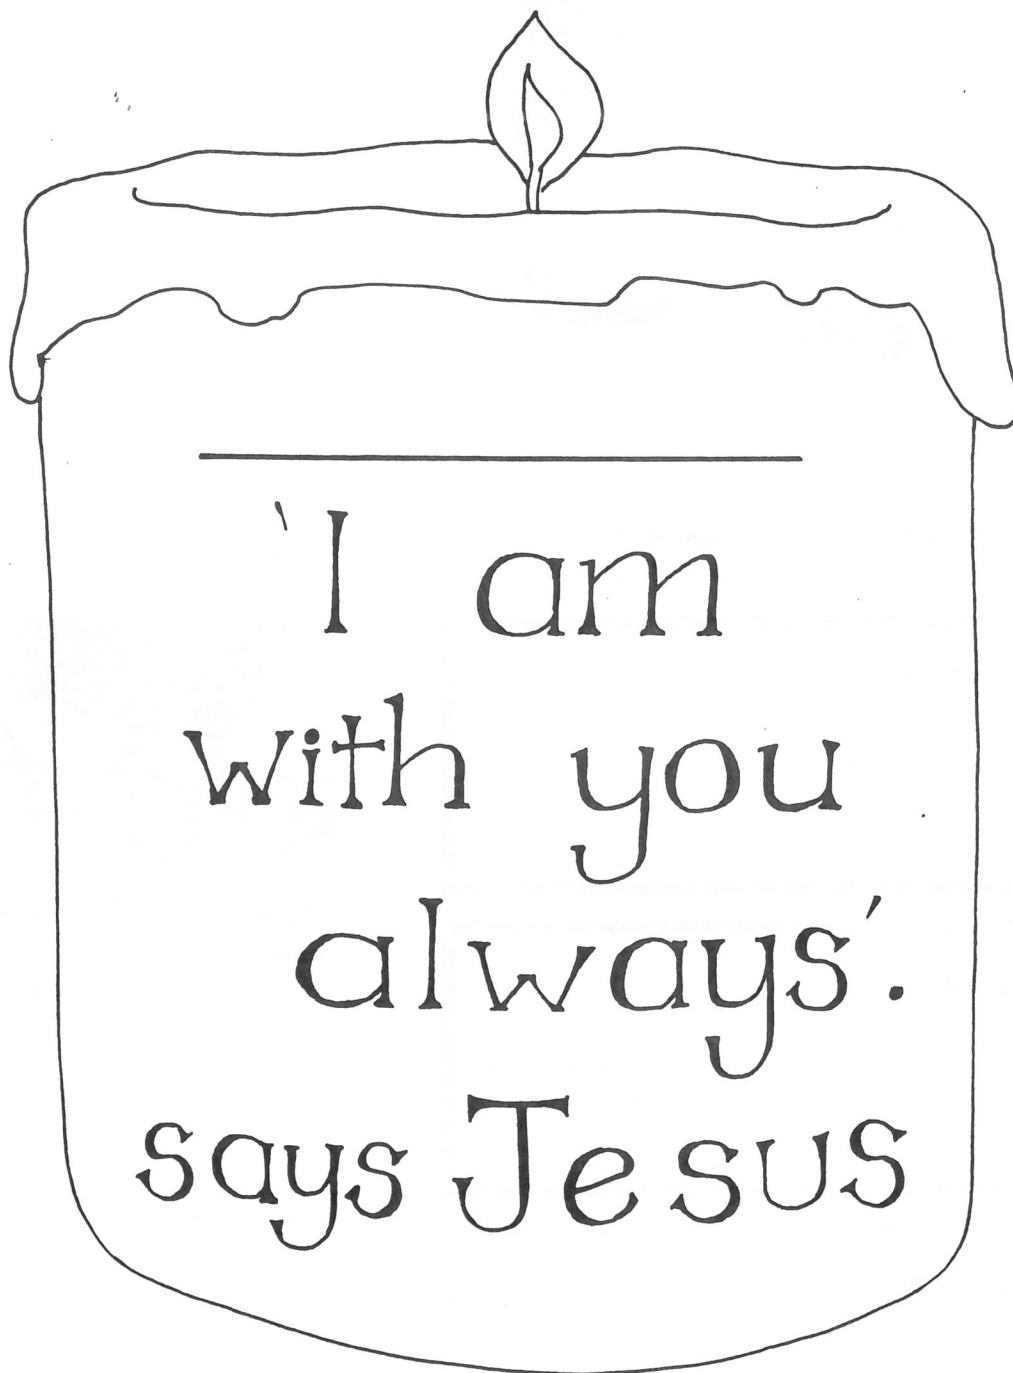 'I am
with you
always'.
says Jesus